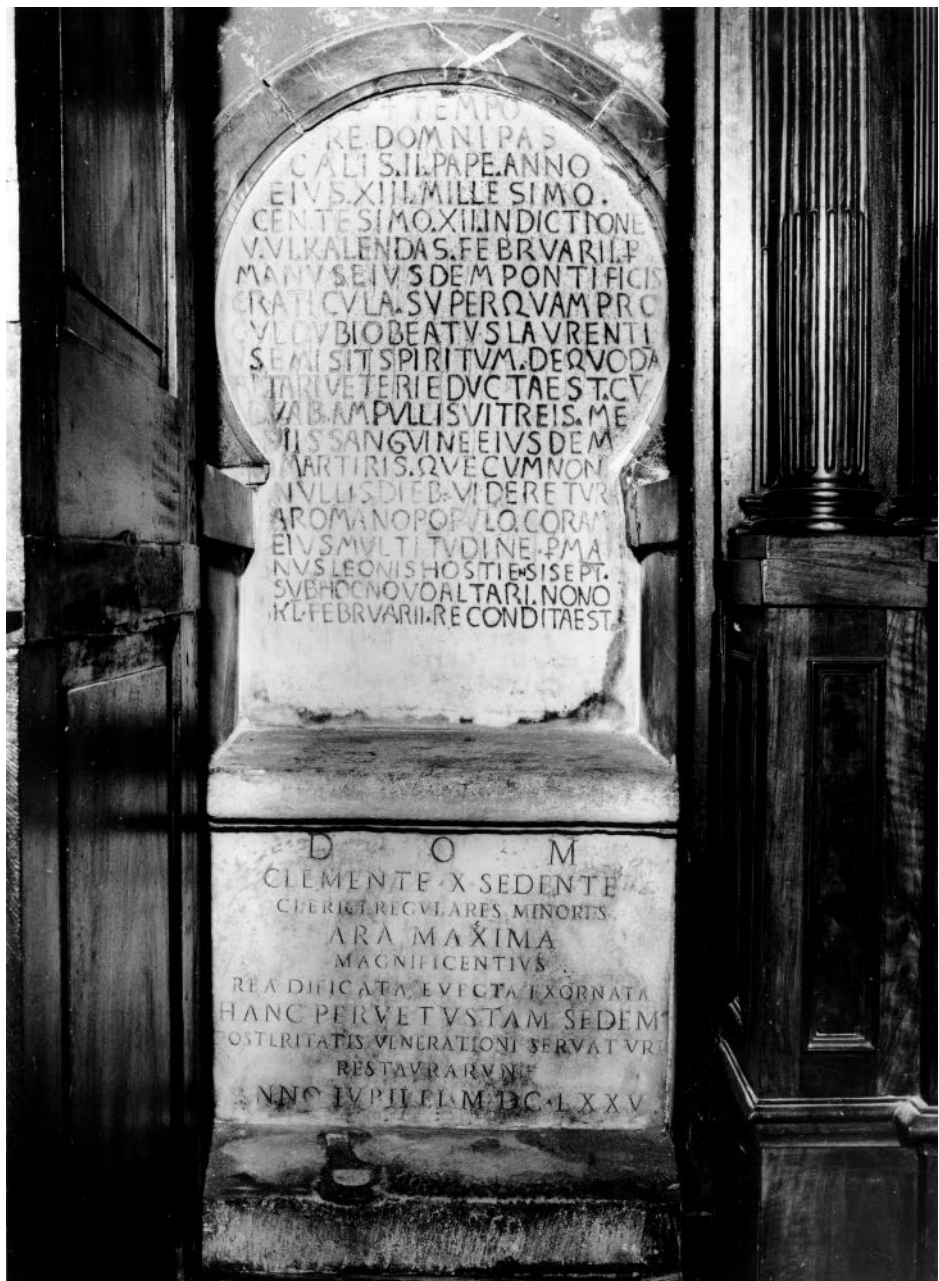 + TEMPO
RE DOMNI PAS
CALIS.II.PAPE.ANNO
EIVS.XIII.MILLESIMO.
CENTESIMO.XII.INDICTIONE
V.VI.KALENDAS.FEBRVARII.P
MANVS EIVSDEM PONTIFICIS
CRATICVLA.SVPER QVAM PRO
CVL DVBIO BEATVS LAVRENTI
VS EMISIT SPIRITVM.DE QVODA
ALTARI VETERI EDVCTA EST.CV
DVAB.AMPVLLIS VITREIS.ME
DIIS SANGVINE EIVSDEM
MARTIRIS.QVE CVM NON
NVLLIS DIEB.VIDERETVR
A ROMANO POPVLO.CORAM
EIVS MVLTITVDINE.P MA
NVS LEONIS HOSTIENSIS EPI.
SVB HOC NOVO ALTARI.NONO
KL.FEBRVARII.RECONDITA EST.
D O M
CLEMENTE·X·SEDENTE
CLERICI REGVLARES MINORES
ARA MAXIMA
MAGNIFICENTIVS
READIFICATA EVECTA EXORNATA
HANC PERVETVSTAM SEDEM
POSTERITATIS VENERATIONI SERVATVRI
RESTAVRARVNT
ANNO IVBILEI·M·DC·LXXV